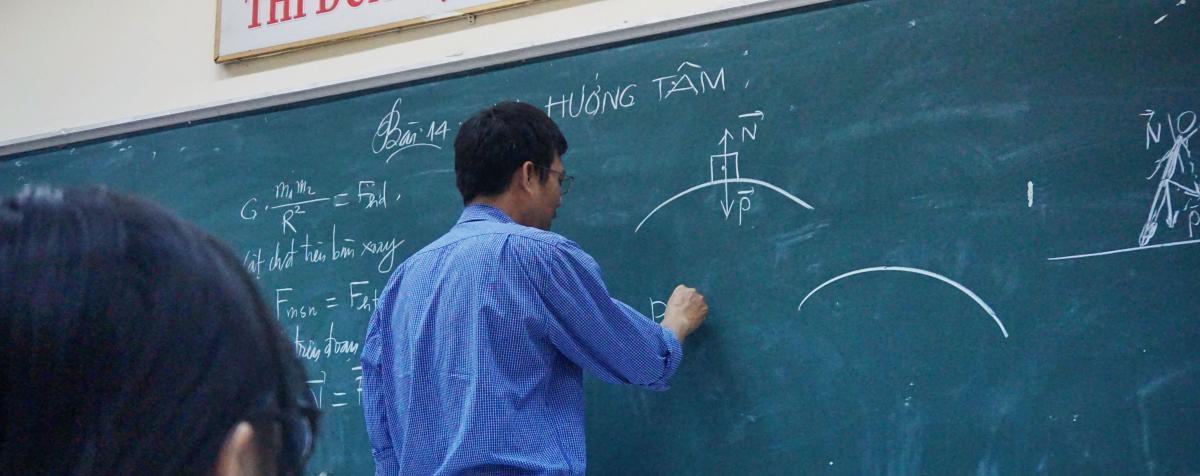 THI
Bài 14
HƯỚNG TÂM
G. m₁m₂ / R² = Fhd.
vật chất trên bàn xoay
Fmsn = Fht
trên đoạn
N⃗ =
N⃗
P⃗
P
N⃗
P⃗